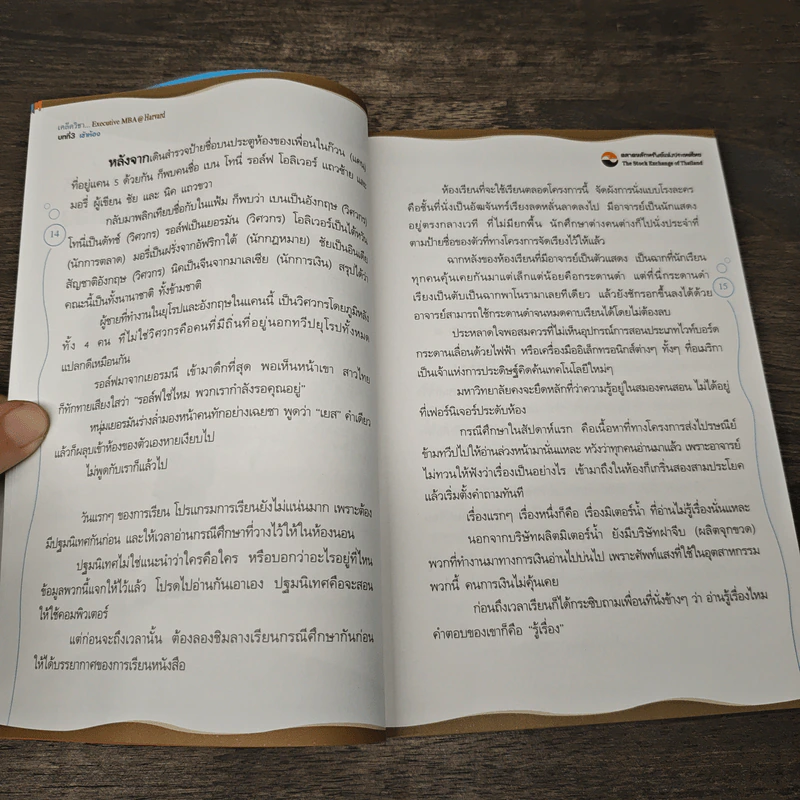 เคล็ดวิชา... Executive MBA @ Harvard
บทที่3 เข้าห้อง
หลังจากเดินสำรวจป้ายชื่อบนประตูห้องของเพื่อนในก๊วน (แคน)
ที่อยู่แคน S ด้วยกัน ก็พบคนชื่อ เบน โทนี่ รอล์ฟ โอลิเวอร์ แถวซ้าย และ
มอรี่ ผู้เขียน ชัย และ นิค แถวขวา
กลับมาพลิกเทียบชื่อกับในแฟ้ม ก็พบว่า เบนเป็นอังกฤษ (วิศวกร)
โทนี่เป็นดัทช์ (วิศวกร) รอล์ฟเป็นเยอรมัน (วิศวกร) โอลิเวอร์เป็นไต้หวัน
(นักการตลาด) มอรี่เป็นฝรั่งจากอัฟริกาใต้ (นักกฎหมาย) ชัยเป็นอินเดีย
สัญชาติอังกฤษ (วิศวกร) นิคเป็นจีนจากมาเลเซีย (นักการเงิน) สรุปได้ว่า
คณะนี้เป็นทั้งนานาชาติ ทั้งข้ามชาติ
ผู้ชายที่ทำงานในยุโรปและอังกฤษในแคนนี้ เป็นวิศวกรโดยภูมิหลัง
ทั้ง 4 คน ที่ไม่ใช่วิศวกรคือคนที่มีถิ่นที่อยู่นอกทวีปยุโรปทั้งหมด
แปลกดีเหมือนกัน
รอล์ฟมาจากเยอรมนี เข้ามาดึกที่สุด พอเห็นหน้าเขา สาวไทย
ก็ทักทายเสียงใสว่า "รอล์ฟใช่ไหม พวกเรากำลังรอคุณอยู่"
หนุ่มเยอรมันร่างล่ำมองหน้าคนทักอย่างเฉยชา พูดว่า "เยส" คำเดียว
แล้วก็ผลุบเข้าห้องของตัวเองหายเงียบไป
ไม่พูดกับเราก็แล้วไป
วันแรกๆ ของการเรียน โปรแกรมการเรียนยังไม่แน่นมาก เพราะต้อง
มีปฐมนิเทศกันก่อน และให้เวลาอ่านกรณีศึกษาที่วางไว้ให้ในห้องนอน
ปฐมนิเทศไม่ใช่แนะนำว่าใครคือใคร หรือบอกว่าอะไรอยู่ที่ไหน
ข้อมูลพวกนี้แจกให้ไว้แล้ว โปรดไปอ่านกันเอาเอง ปฐมนิเทศคือจะสอน
ให้ใช้คอมพิวเตอร์
แต่ก่อนจะถึงเวลานั้น ต้องลองชิมลางเรียนกรณีศึกษากันก่อน
ให้ได้บรรยากาศของการเรียนหนังสือ
14
ตลาดหลักทรัพย์แห่งประเทศไทย
The Stock Exchange of Thailand
ห้องเรียนที่จะใช้เรียนตลอดโครงการนี้ จัดผังการนั่งแบบโรงละคร
คือชั้นที่นั่งเป็นอัฒจันทร์เรียงลดหลั่นลาดลงไป มีอาจารย์เป็นนักแสดง
อยู่ตรงกลางเวที ที่ไม่มียกพื้น นักศึกษาต่างคนต่างก็ไปนั่งประจำที่
ตามป้ายชื่อของตัวที่ทางโครงการจัดเรียงไว้ให้แล้ว
ฉากหลังของห้องเรียนที่มีอาจารย์เป็นตัวแสดง เป็นฉากที่นักเรียน
ทุกคนคุ้นเคยกันมาแต่เล็กแต่น้อยคือกระดานดำ แต่ที่นี่กระดานดำ
เรียงเป็นตับเป็นฉากพาโนรามาเลยทีเดียว แล้วยังชักรอกขึ้นลงได้ด้วย
อาจารย์สามารถใช้กระดานดำจนหมดคาบเรียนได้โดยไม่ต้องลบ
ประหลาดใจพอสมควรที่ไม่เห็นอุปกรณ์การสอนประเภทไวท์บอร์ด
กระดานเลื่อนด้วยไฟฟ้า หรือเครื่องมืออิเล็กทรอนิกส์ต่างๆ ทั้งๆ ที่อเมริกา
เป็นเจ้าแห่งการประดิษฐ์คิดค้นเทคโนโลยีใหม่ๆ
มหาวิทยาลัยคงจะยึดหลักที่ว่าความรู้อยู่ในสมองคนสอน ไม่ได้อยู่
ที่เฟอร์นิเจอร์ประดับห้อง
กรณีศึกษาในสัปดาห์แรก คือเนื้อหาที่ทางโครงการส่งไปรษณีย์
ข้ามทวีปไปให้อ่านล่วงหน้ามานั่นแหละ หวังว่าทุกคนอ่านมาแล้ว เพราะอาจารย์
ไม่ทวนให้ฟังว่าเรื่องเป็นอย่างไร เข้ามาถึงในห้องก็เกริ่นสองสามประโยค
แล้วเริ่มตั้งคำถามทันที
เรื่องแรกๆ เรื่องหนึ่งก็คือ เรื่องมิเตอร์น้ำ ที่อ่านไม่รู้เรื่องนั่นแหละ
นอกจากบริษัทผลิตมิเตอร์น้ำ ยังมีบริษัทฝาจีบ (ผลิตจุกขวด)
พวกที่ทำงานมาทางการเงินอ่านไปบ่นไป เพราะศัพท์แสงที่ใช้ในอุตสาหกรรม
พวกนี้ คนการเงินไม่คุ้นเคย
ก่อนถึงเวลาเรียนก็ได้กระซิบถามเพื่อนที่นั่งข้างๆ ว่า อ่านรู้เรื่องไหม
คำตอบของเขาก็คือ "รู้เรื่อง"
15